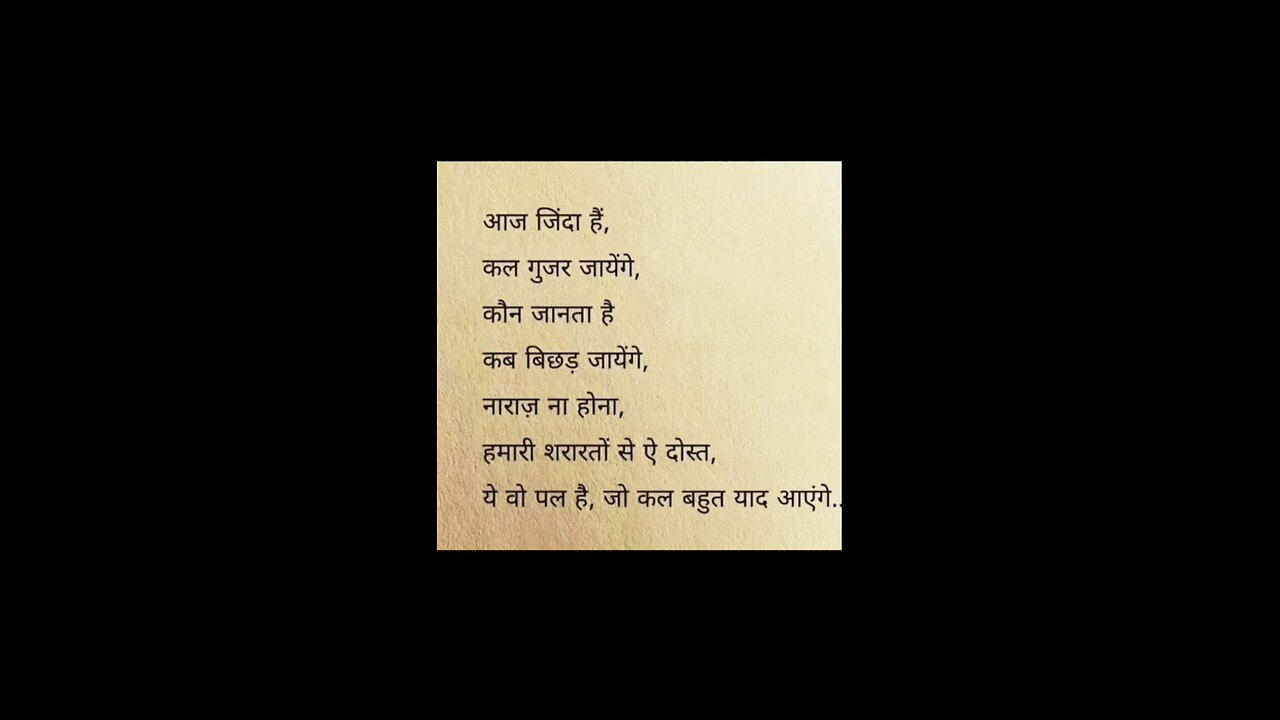 आज जिंदा हैं,
कल गुजर जायेंगे,
कौन जानता है
कब बिछड़ जायेंगे,
नाराज़ ना होना,
हमारी शरारतों से ऐ दोस्त,
ये वो पल है, जो कल बहुत याद आएंगे..